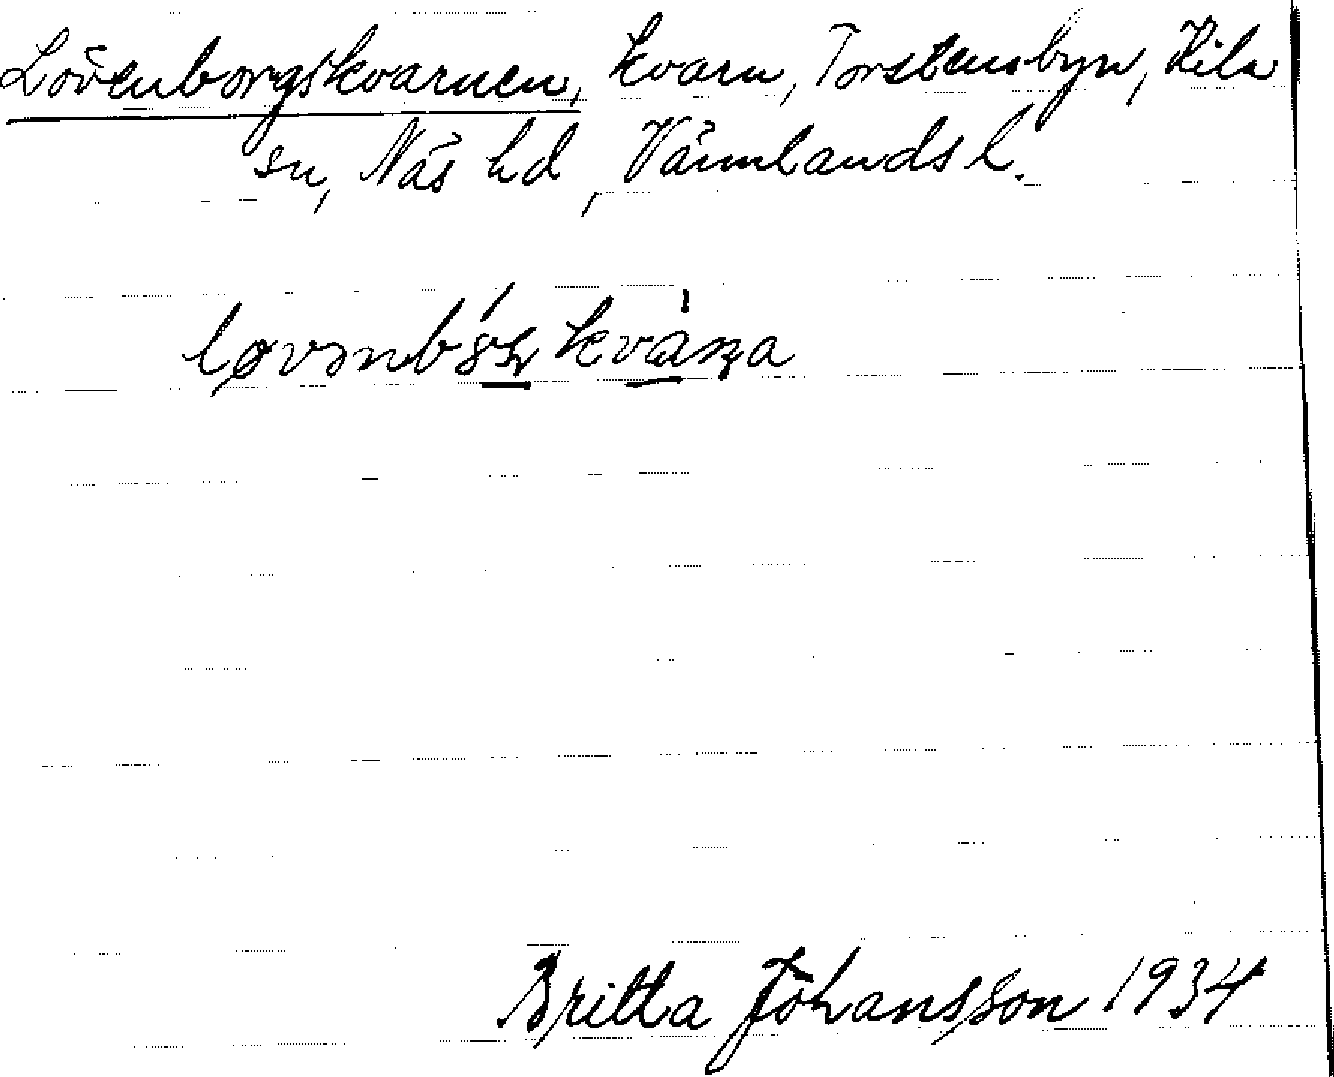 Lövenborgskvarnen, kvarn, Torstensbyn, Kila
sn, Näs hd, Värmlands l.
Britta Johansson 1934